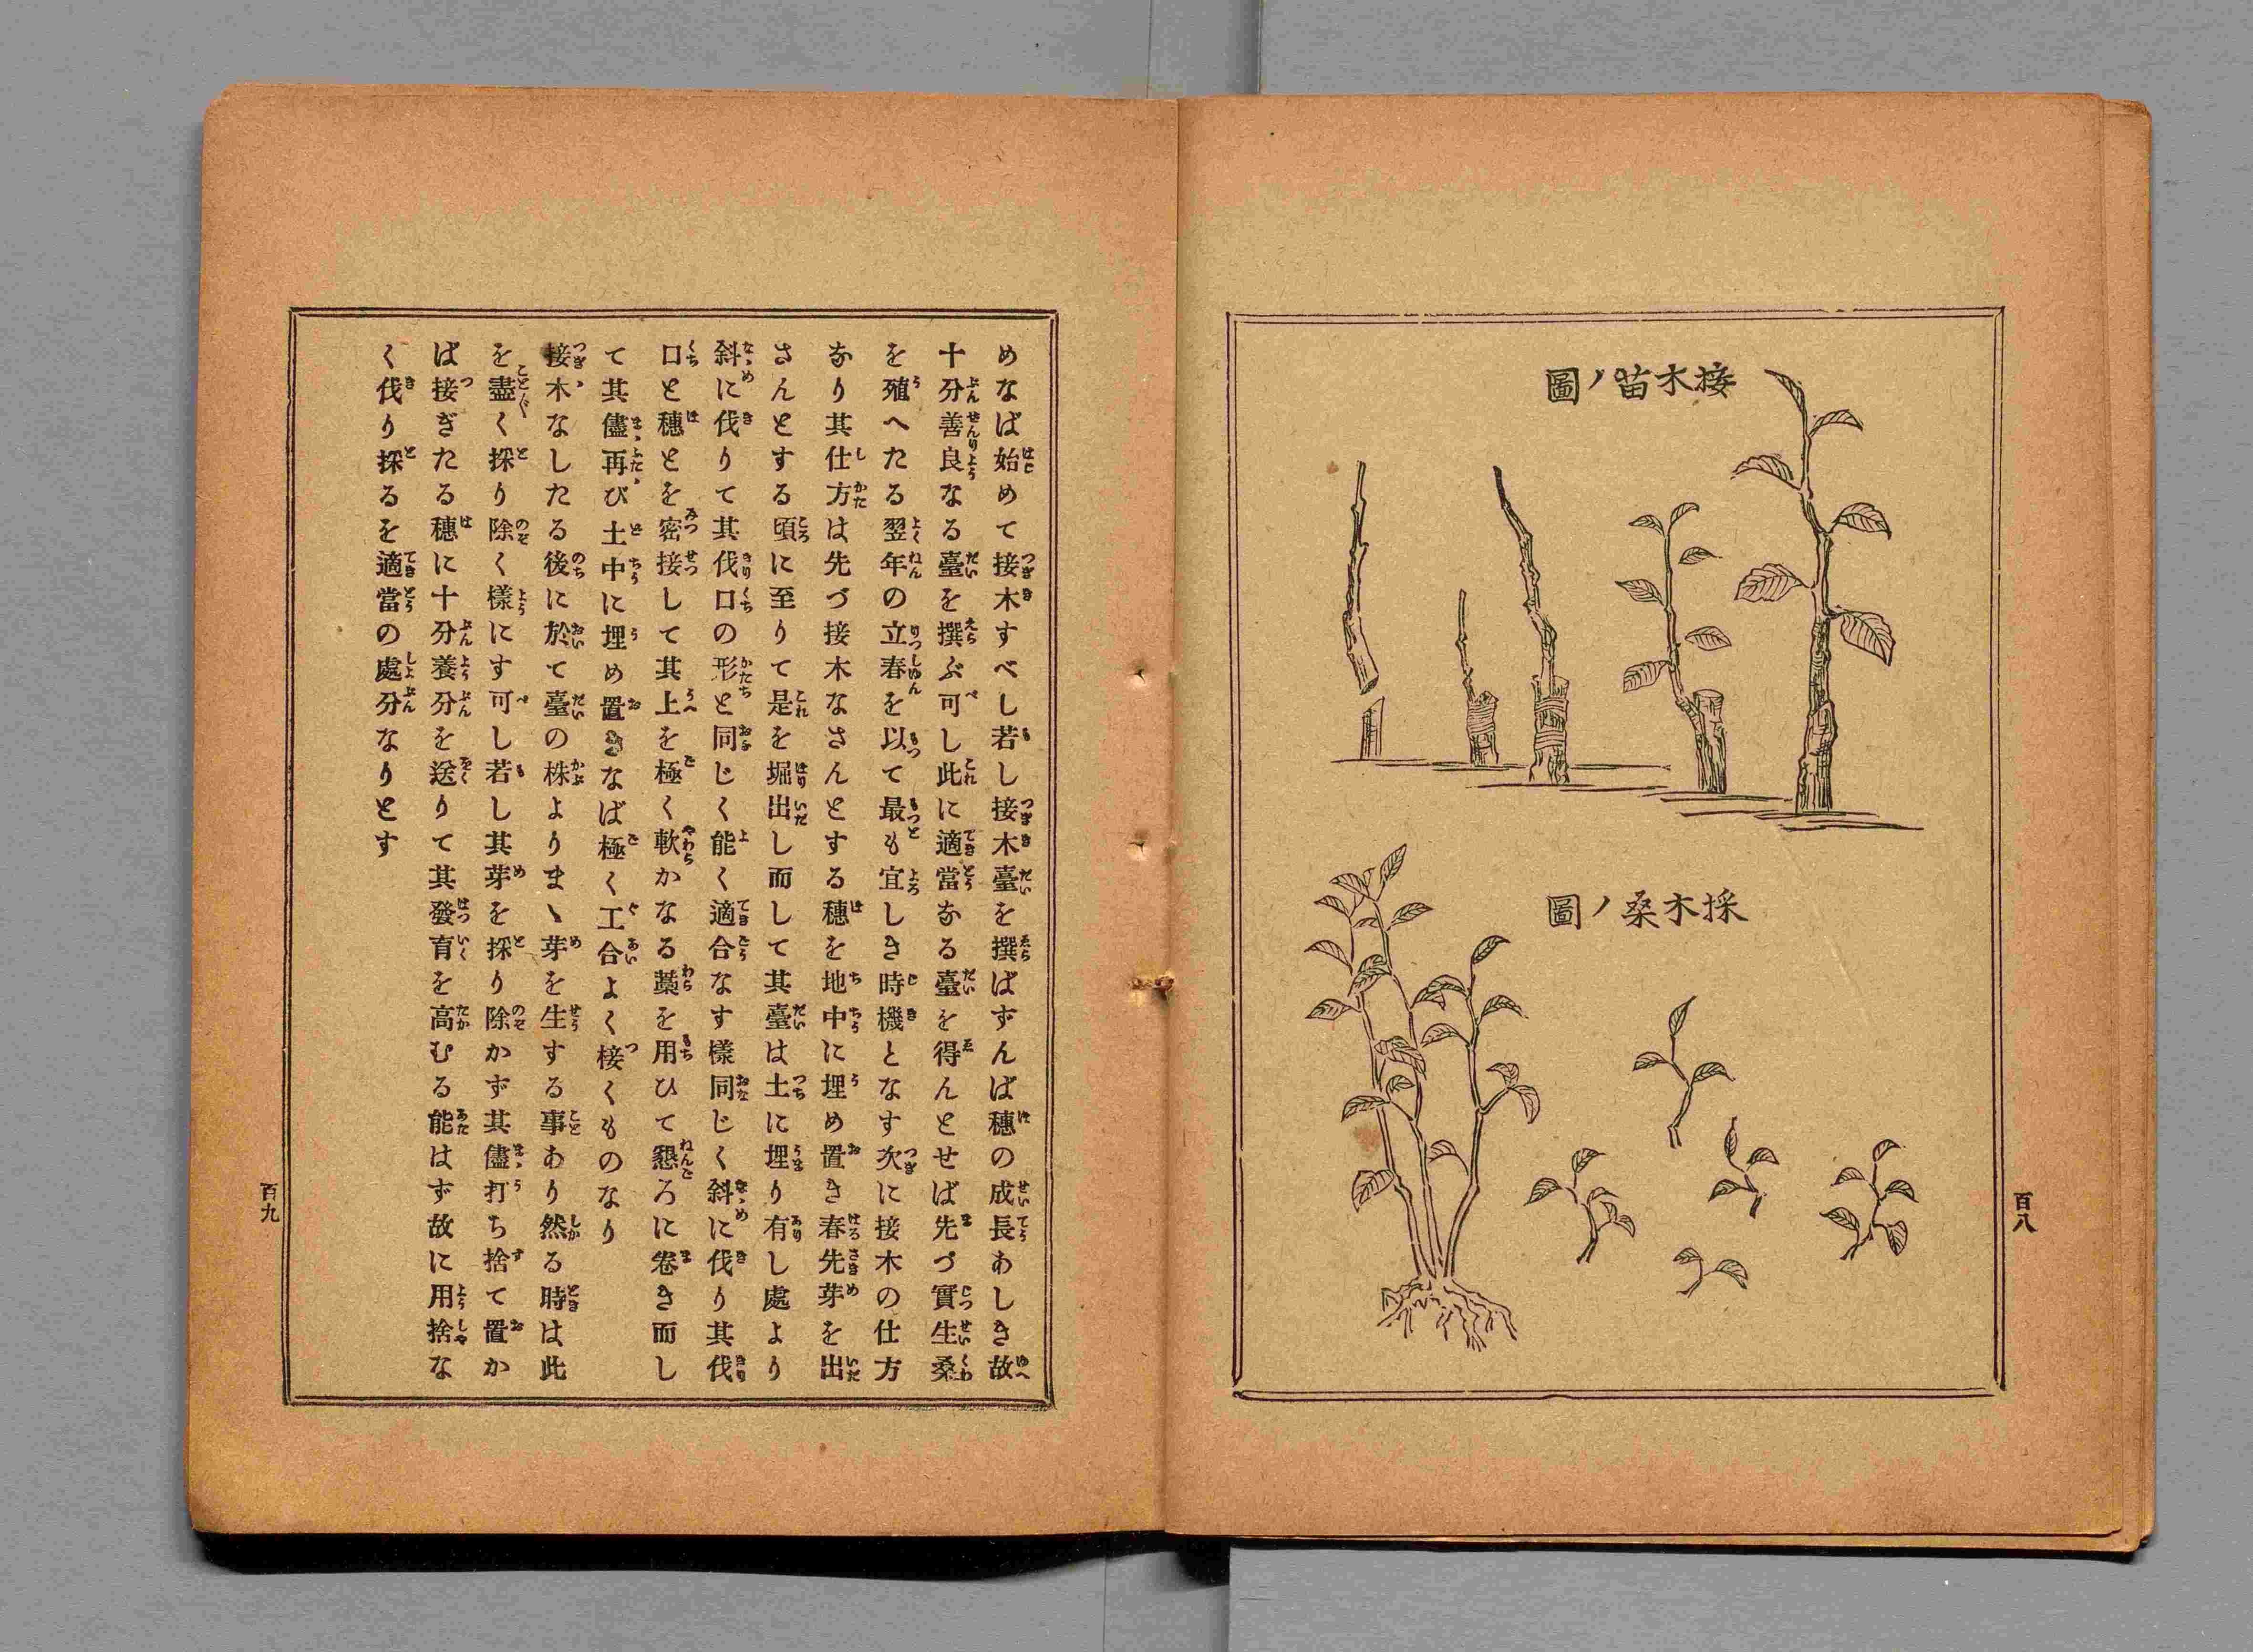 接木苗ノ圖
採木桑ノ圖
百八
めなば始めて接木すべし若し接木臺を撰ばずんば穗の成長あしき故
十分善良なる臺を撰ぶ可し此に適當なる臺を得んとせば先づ實生桑
を殖へたる翌年の立春を以て最も宜しき時機となす次に接木の仕方
なり其仕方は先づ接木なさんとする穗を地中に埋め置き春先芽を出
さんとする頃に至りて是を堀出し而して其臺は土に埋り有し處より
斜に伐りて其伐口の形と同じく能く適合なす樣同じく斜に伐り其伐
口と穗とを密接して其上を極く軟かなる藁を用ひて懇ろに卷き而し
て其儘再び土中に埋め置きなば極く工合よく接くものなり
接木なしたる後に於て臺の株よりまゝ芽を生する事あり然る時は此
を盡く採り除く樣にす可し若し其芽を採り除かず其儘打ち捨て置か
ば接ぎたる穗に十分養分を送りて其發育を高むる能はず故に用捨な
く伐り採るを適當の處分なりとす
百九